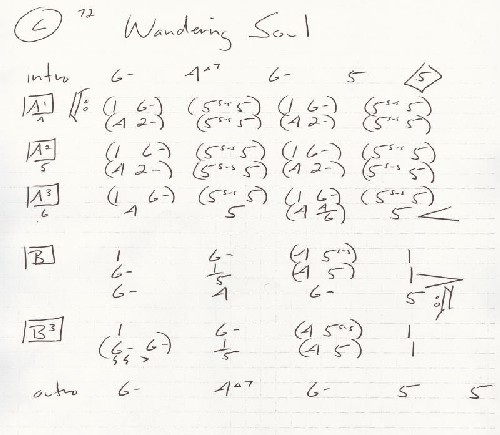 C 72 Wandering Soul
intro 6- 4△7 6- 5 5
A¹ 4 ‖: (1 6-) (5sus 5) (1 6-) (5sus 5)
(4 2-) (5sus 5) (4 2-) (5sus 5)
A² 5 (1 6-) (5sus 5) (1 6-) (5sus 5)
(4 2-) (5sus 5) (4 2-) (5sus 5)
A³ 6 (1 6-) (5sus 5) (1 6-) (5sus 5)
4 5 (4 4/6) 5 <
B 1 6- (4 5sus) 1
6- 1/5 (4 5) 1 >
6- 4 6- 5 :‖
B³ 1 6- (4 5sus) 1
(6- 6-) 1/5 (4 5) 1
outro 6- 4△7 6- 5 5